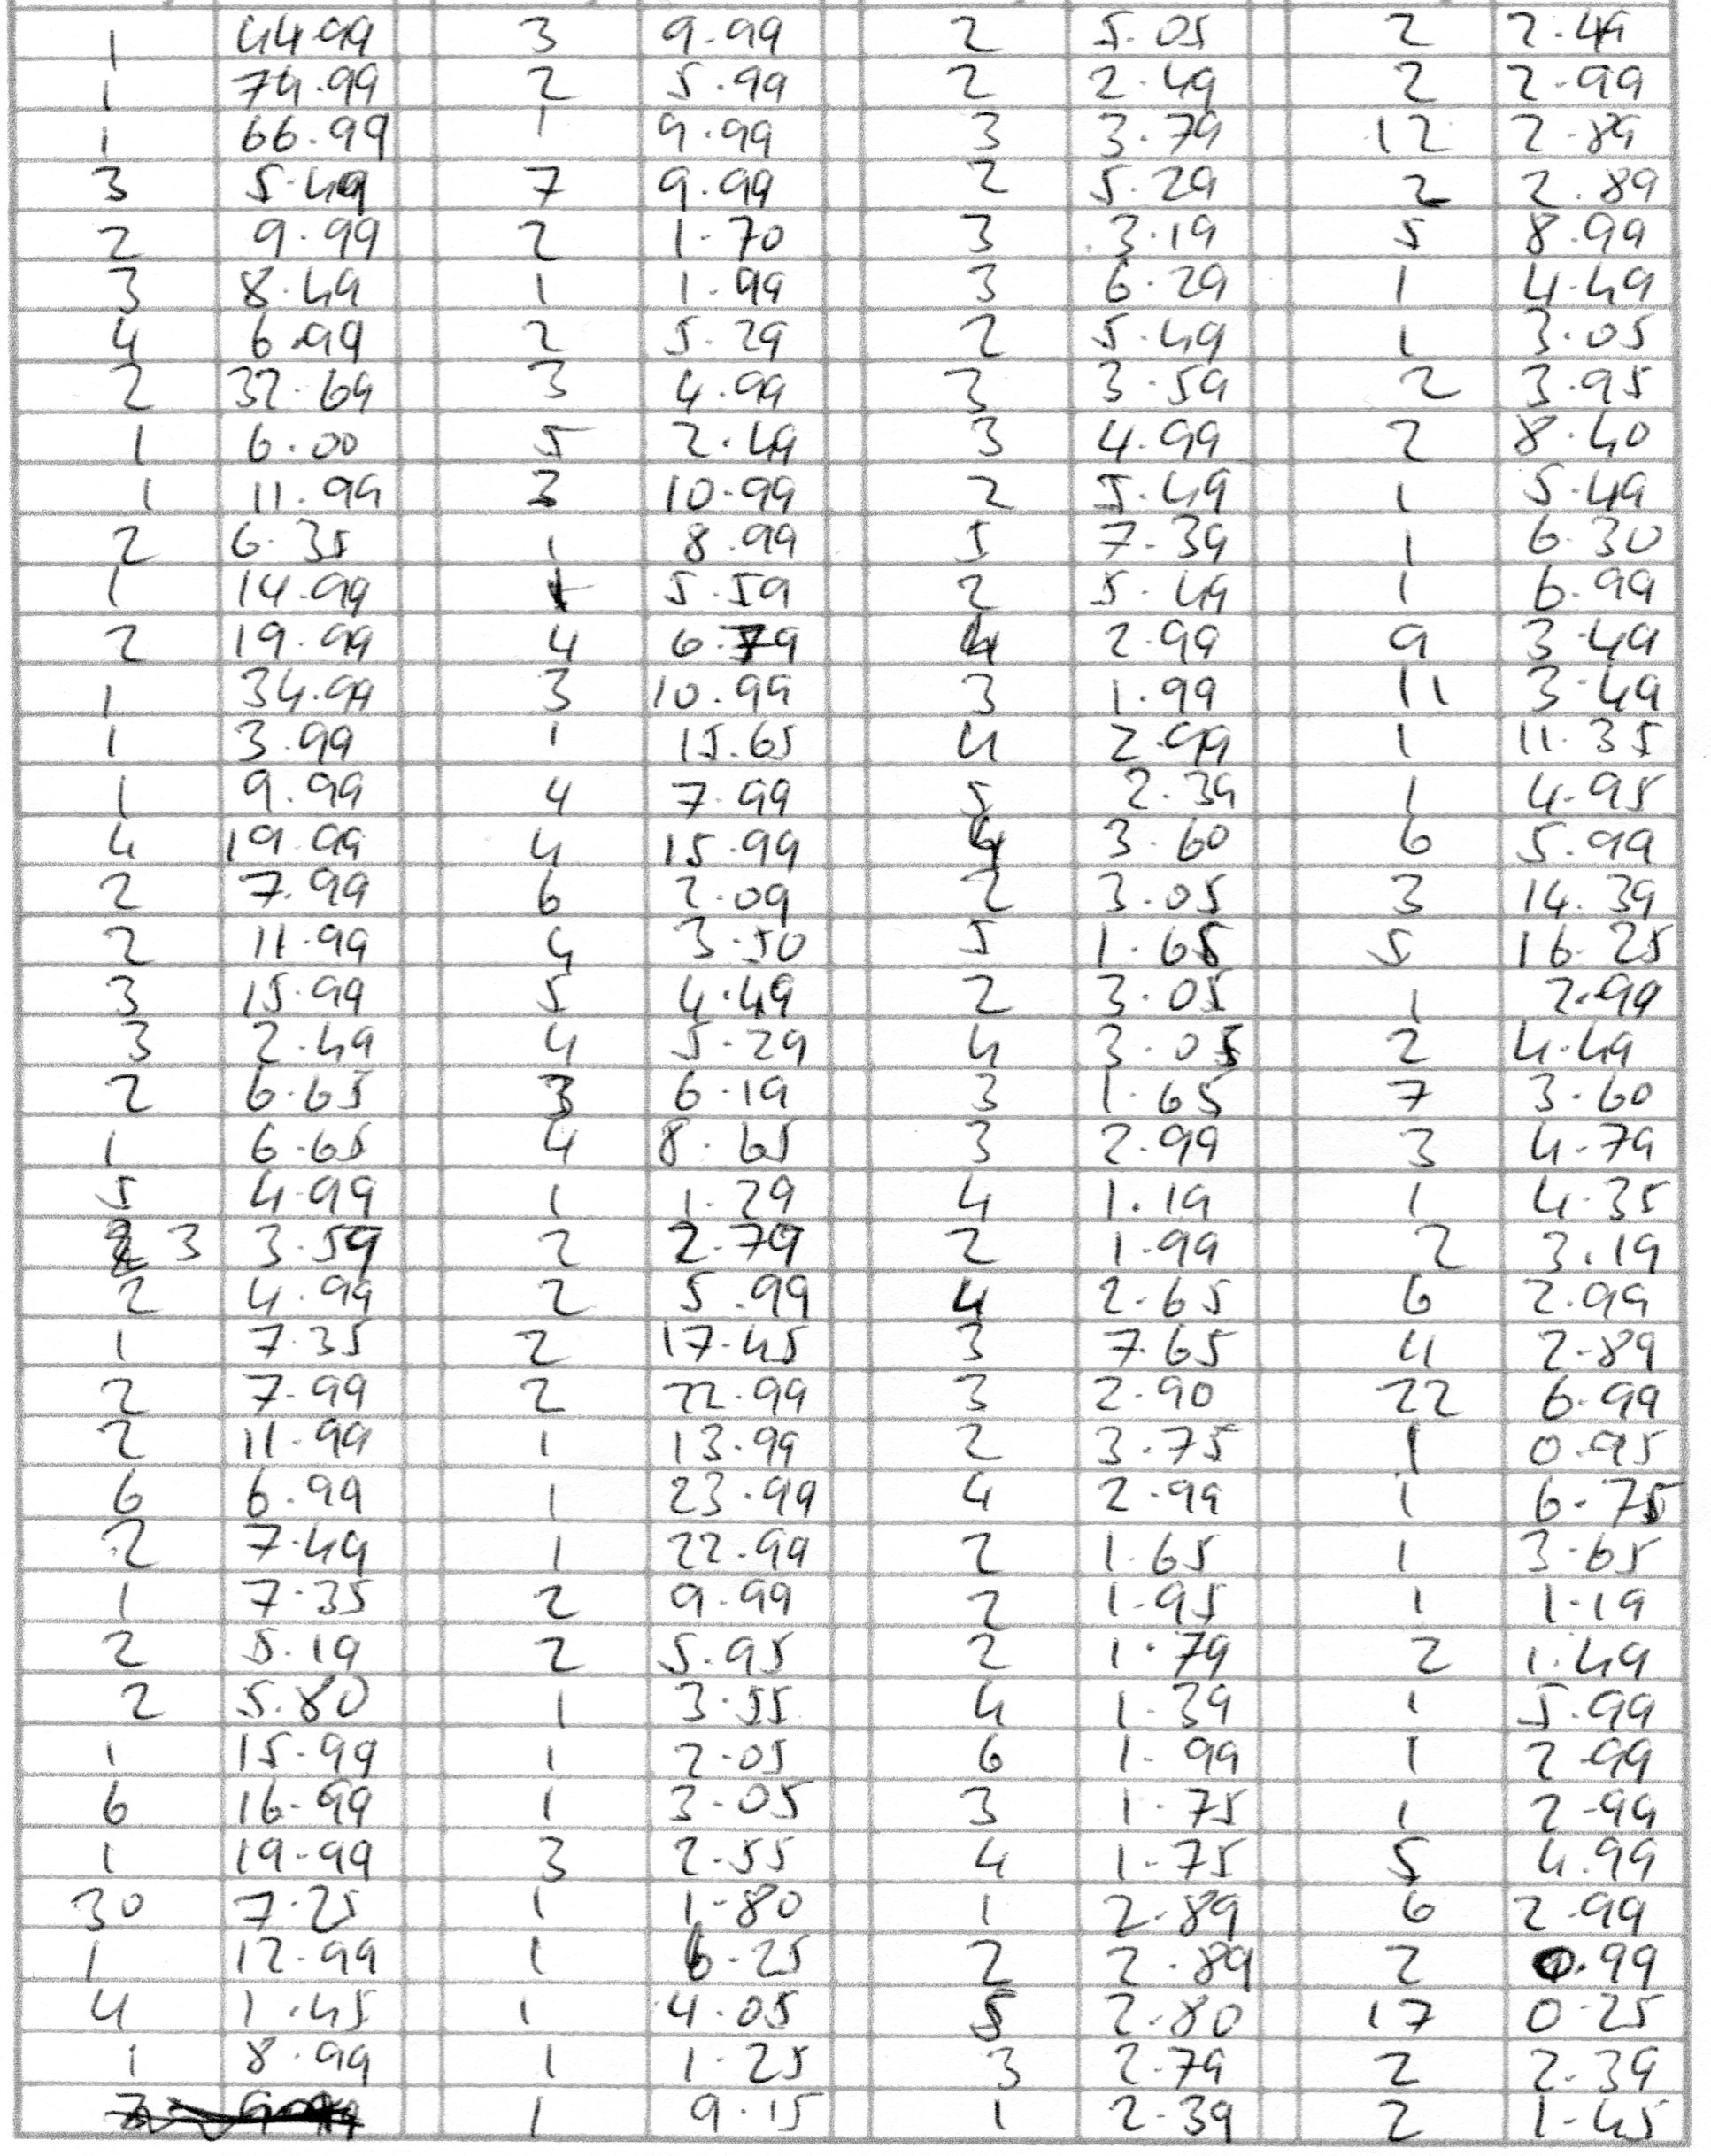 1 44.99 3 9.99 2 5.05 2 2.49
1 74.99 2 5.99 2 2.49 2 2.99
1 66.99 1 9.99 3 3.79 12 2.89
3 5.49 7 9.99 2 5.29 2 2.89
2 9.99 2 1.70 3 3.19 5 8.99
3 8.49 1 1.99 3 6.29 1 4.49
4 6.99 2 5.29 2 5.49 1 3.05
2 32.69 3 4.99 3 3.59 2 3.95
1 6.00 5 2.49 3 4.99 2 8.40
1 11.99 3 10.99 2 5.49 1 5.49
2 6.35 1 8.99 5 7.39 1 6.30
1 14.99 1 5.59 2 5.49 1 6.99
2 19.99 4 6.79 4 2.99 9 3.49
1 34.99 3 10.99 3 1.99 11 3.49
1 3.99 1 15.65 4 2.99 1 11.35
1 9.99 4 7.99 5 2.39 1 4.95
4 19.99 4 15.99 4 3.60 6 5.99
2 7.99 6 2.09 2 3.05 3 14.39
2 11.99 4 3.50 5 1.65 5 16.25
3 15.99 5 4.49 2 3.05 1 2.99
3 2.49 4 5.29 4 3.05 2 4.49
2 6.65 3 6.19 3 1.65 7 3.60
1 6.65 4 8.65 3 2.99 3 4.79
5 4.99 1 1.29 4 1.19 1 4.35
3 3.59 2 2.79 2 1.99 2 3.19
2 4.99 2 5.99 4 2.65 6 2.99
1 7.35 2 17.45 3 7.65 4 2.89
2 7.99 2 22.99 3 2.90 22 6.99
2 11.99 1 13.99 2 3.75 1 0.95
6 6.99 1 23.99 4 2.99 1 6.75
2 7.49 1 22.99 2 1.65 1 3.65
1 7.35 2 9.99 2 1.95 1 1.19
2 5.19 2 5.95 2 1.79 2 1.49
2 5.80 1 3.55 4 1.39 1 5.99
1 15.99 1 2.05 6 1.99 1 2.99
6 16.99 1 3.05 3 1.75 1 2.99
1 19.99 3 2.55 4 1.75 5 4.99
30 7.25 1 1.80 1 2.89 6 2.99
1 12.99 1 6.25 2 2.89 2 0.99
4 1.45 1 4.05 5 2.80 17 0.25
1 8.99 1 1.25 3 2.79 2 2.39
1 9.15 1 2.39 2 1.45